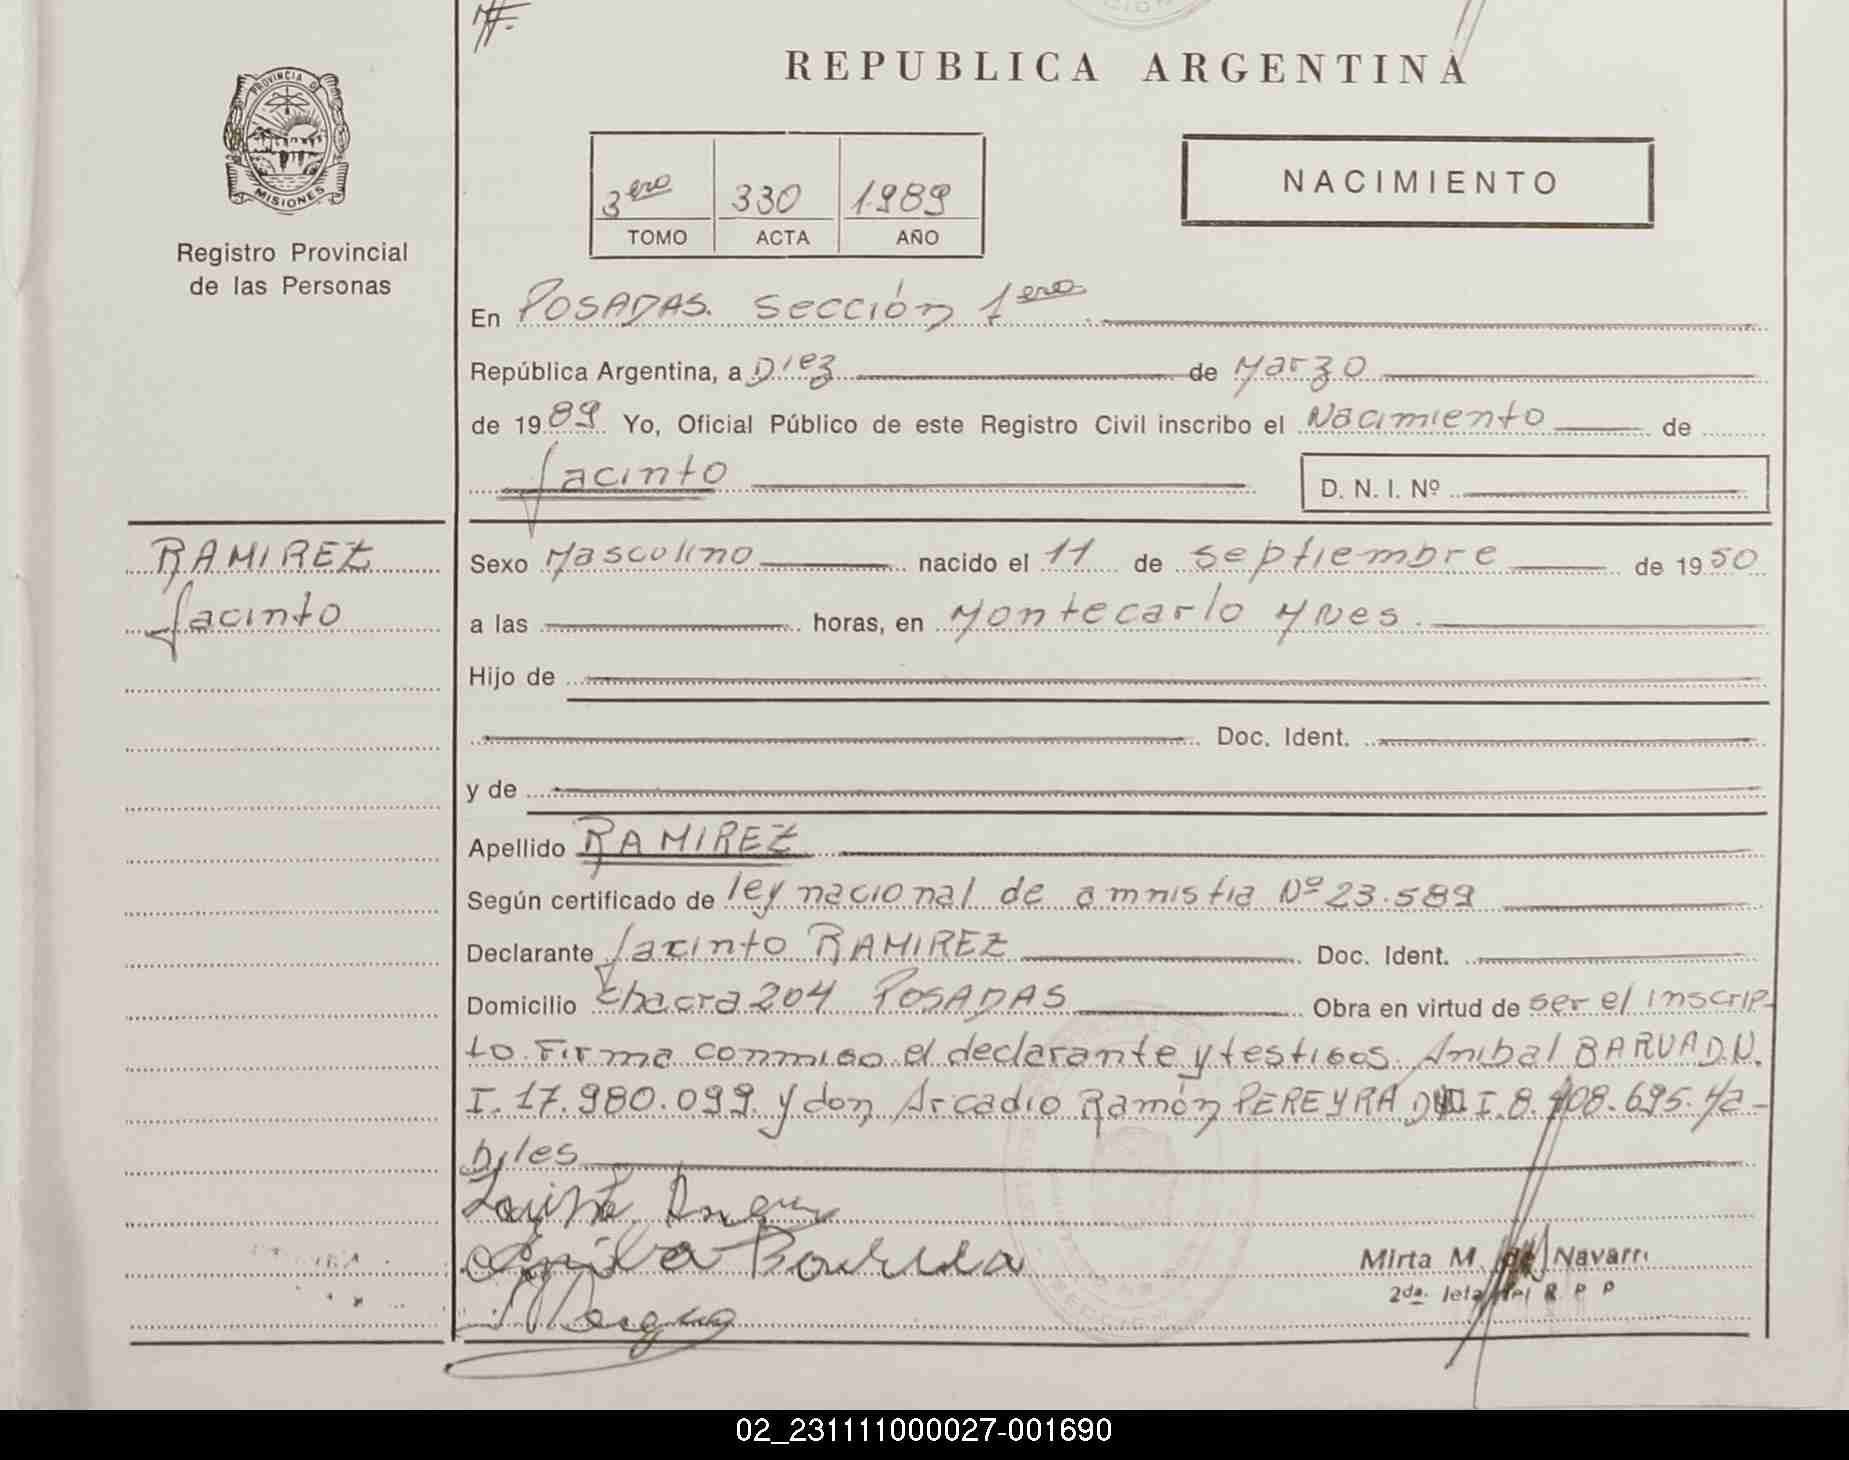 REPUBLICA ARGENTINA
PROVINCIA DE
MISIONES
Registro Provincial
de las Personas
3ero 330 1989
TOMO ACTA AÑO
NACIMIENTO
En POSADAS. Sección 1era
República Argentina, a Diez de Marzo
de 1989 Yo, Oficial Público de este Registro Civil inscribo el Nacimiento de
Jacinto D. N. I. Nº
RAMIREZ
Jacinto
Sexo Masculino nacido el 11 de septiembre de 1950
a las horas, en Montecarlo Mnes.
Hijo de
Doc. Ident.
y de
Apellido RAMIREZ
Según certificado de ley nacional de amnistia Nº 23.589
Declarante Jacinto RAMIREZ Doc. Ident.
Domicilio Chacra 204 POSADAS Obra en virtud de ser el inscrip-
to. Firma conmigo el declarante y testigos. Anibal BARUA D.N.
I. 17.980.099. y don Arcadio Ramón PEREYRA DNI 8.408.695. Ha-
biles
Mirta M. de Navarr
2da. Jefa del R P P
02_231111000027-001690